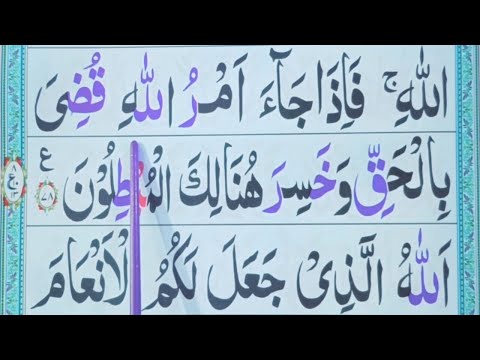 اللّٰهِ ۚ فَاِذَا جَآءَ اَمْرُ اللّٰهِ قُضِیَ
بِالْحَقِّ وَخَسِرَ هُنَالِكَ الْمُبْطِلُوْنَ ﴿۷۸﴾ ع
اَللّٰهُ الَّذِیْ جَعَلَ لَكُمُ الْاَنْعَامَ